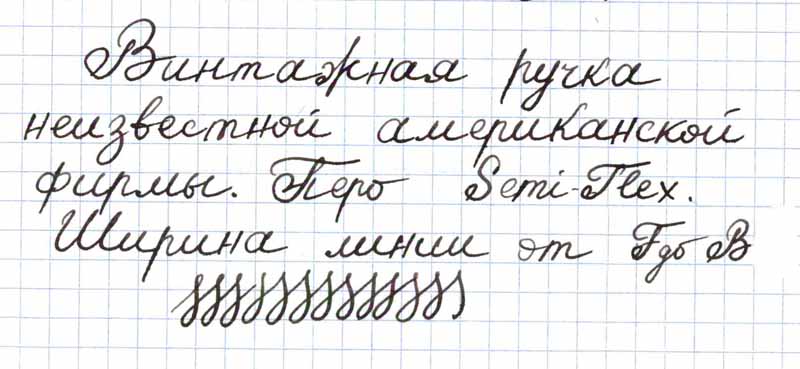 Винтажная ручка
неизвестной американской
фирмы. Перо Semi-Flex.
Ширина линии от F до B